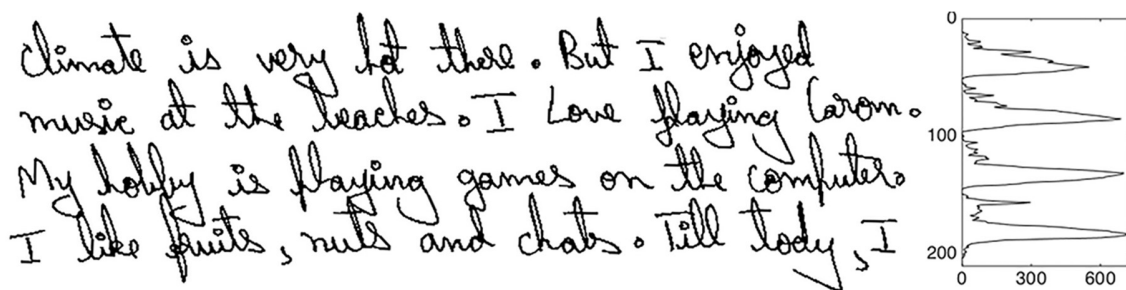 climate is very hot there. But I enjoyed
music at the beaches. I Love playing Carom.
My hobby is playing games on the computer.
I like fruits, nuts and chats. Till tody, I
0
100
200
0 300 600